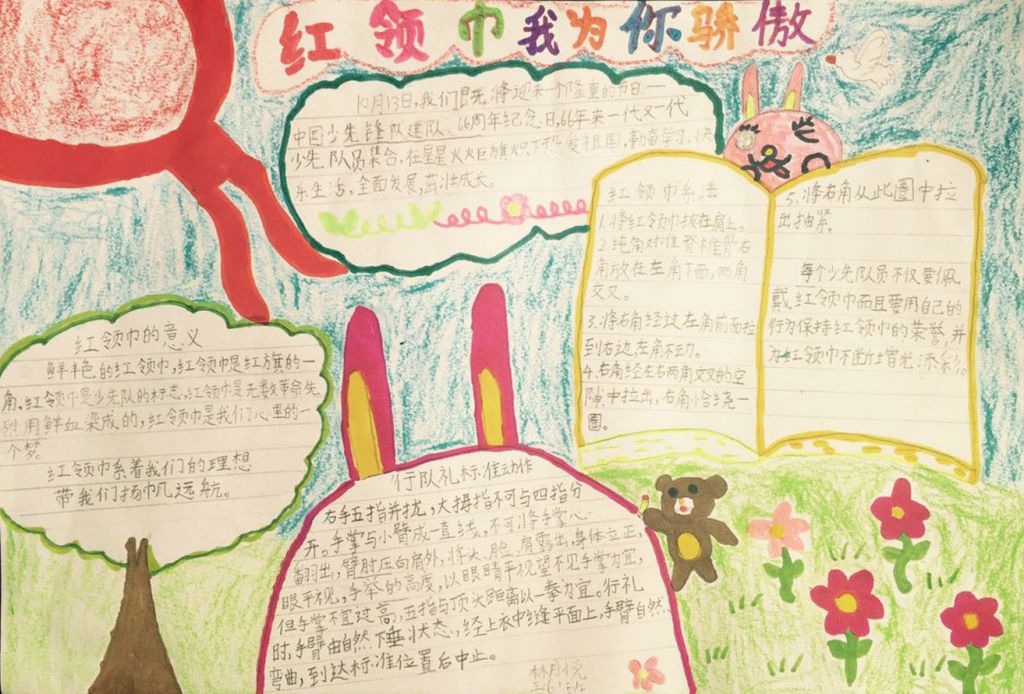 红领巾我为你骄傲
10月13日,我们既将迎来一个隆重的节日——
中国少先锋队建队、66周年纪念日,66年来一代又一代
少先队员集合,在星星火炬旗帜下热爱祖国,勤奋学习,快
乐生活,全面发展,茁壮成长。
红领巾系法
1.将红领巾披在肩上。
2.纯角对准脊椎骨右
角放在左角下面,两角
交叉。
3.将右角经过左角前面拉
到右边,左角不动。
4.右角经左右两角交叉的空
隙中拉出,右角恰绕一
圈。
5.将右角从此圈中拉
出抽紧。
每个少先队员不仅要佩
戴红领巾而且要用自己的
行为保持红领巾的荣誉,并
为红领巾不断增光添彩。
红领巾的意义
鲜丰色的红领巾,红领巾是红旗的一
角,红领巾是少先队的标志,红领巾是无数革命先
烈用鲜血染成的,红领巾是我们心里的一
个梦。
红领巾系着我们的理想
带我们扬帆远航。
行队礼标准动作
右手五指并拢,大拇指不可与四指分
开。手掌与小臂成一直线,不可将手掌心
翻出,臂肘压向肩外,将头、脸、肩露出,身体立正,
眼平视,手举的高度,以眼睛平视望不见手掌为宜,
但手掌不宜过高,五指与顶头距离以一拳为宜。行礼
时,手臂由自然下垂状态,经上衣中缝平面上,手臂自然
弯曲,到达标准位置后中止。
三6班